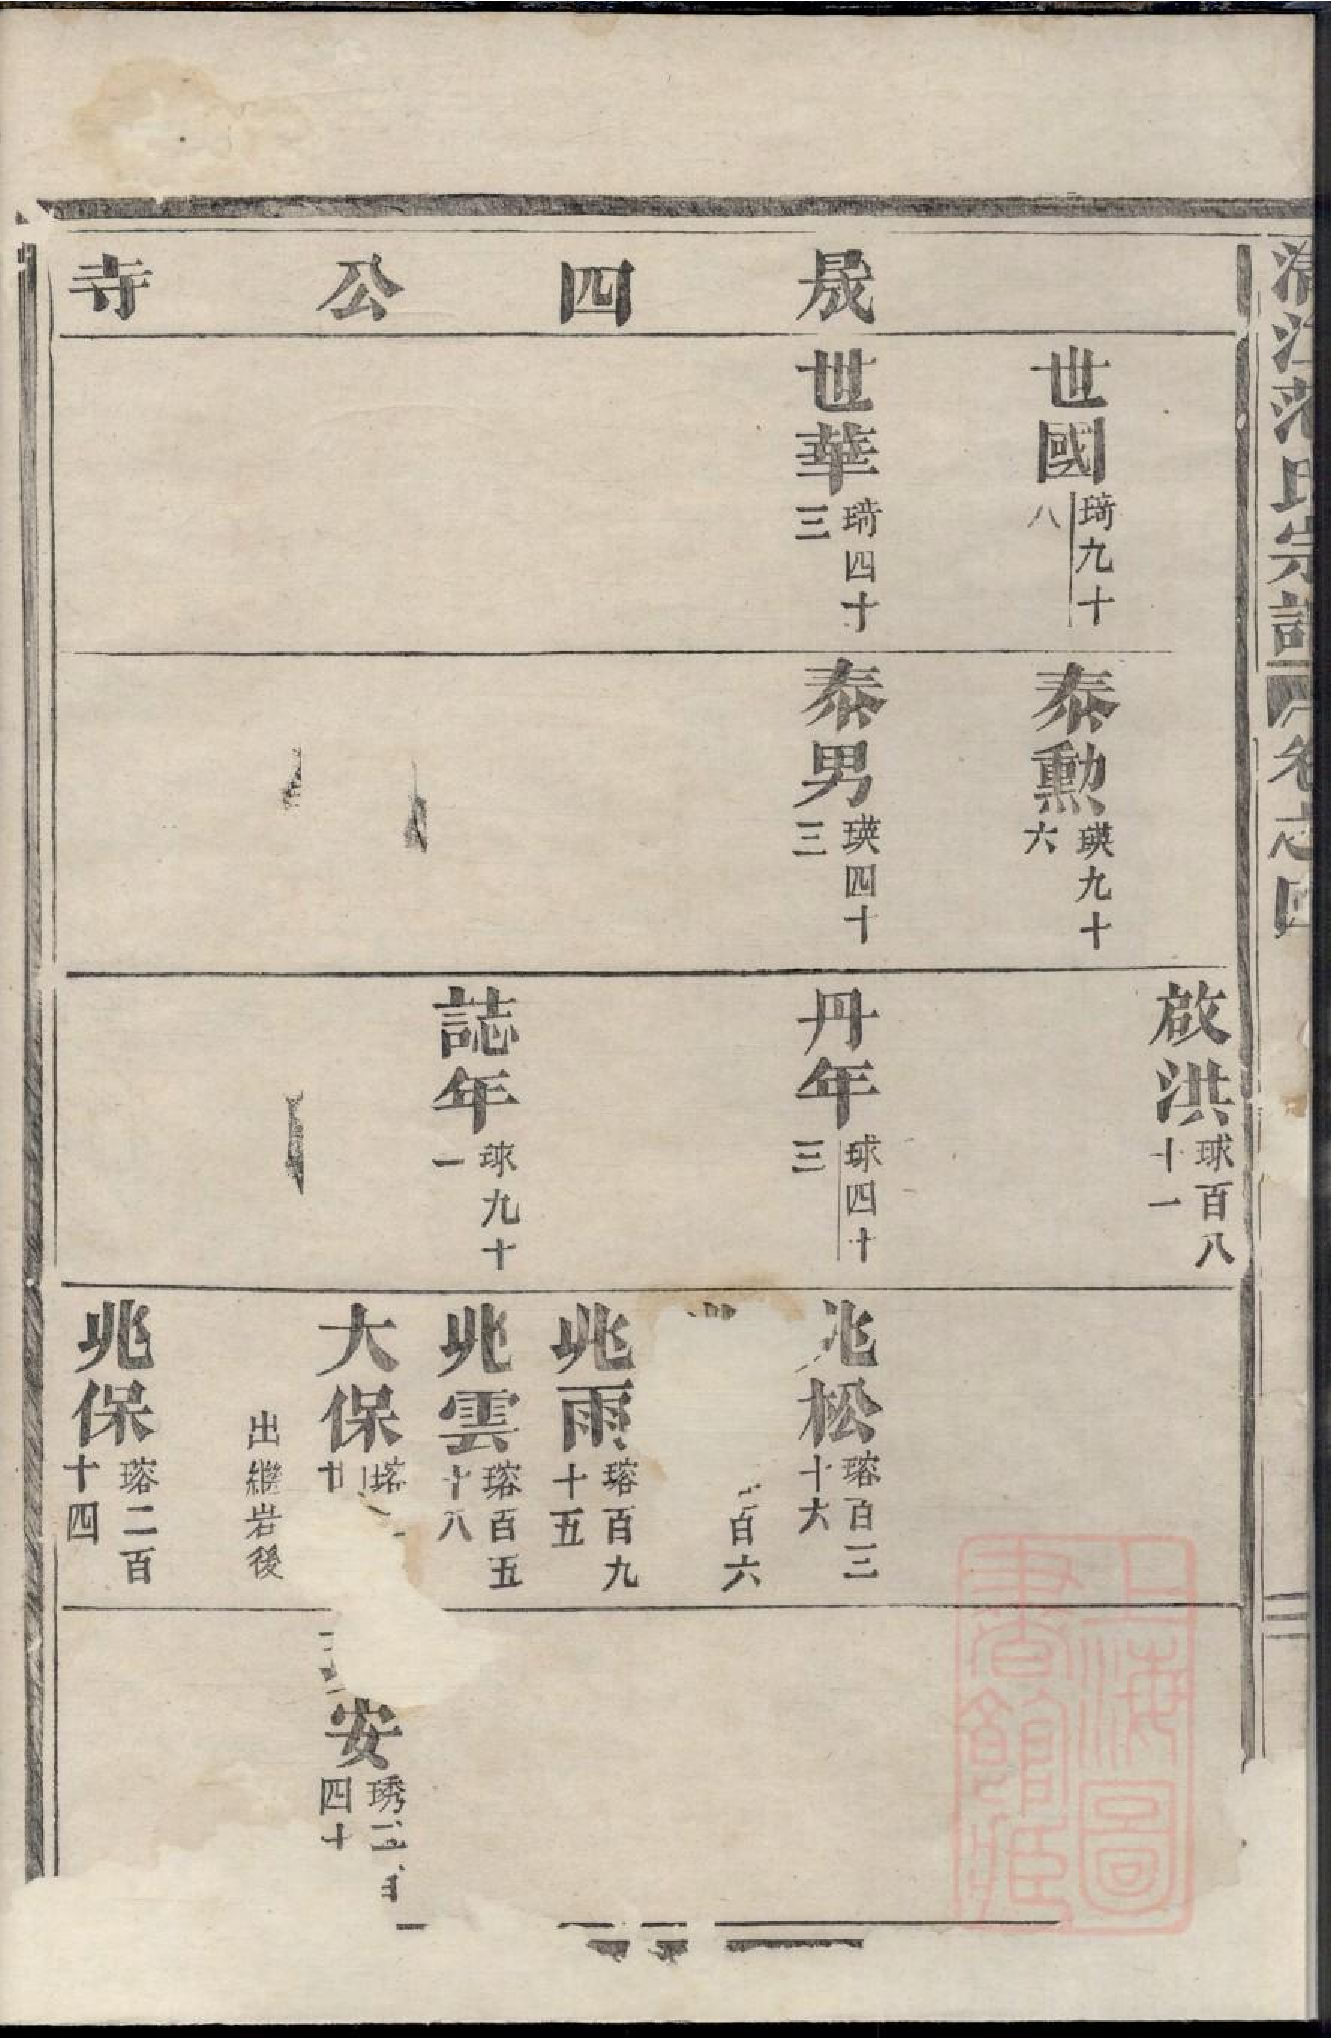 江范氏宗譜 卷之四
三
晟四公寺
世國 琦九十八
世華 琦四十三
泰勲 瑛九十六
泰男 瑛四十三
啟洪 球百八十一
丹年 球四十三
誌年 球九十一
兆松 瑢百三十六
百六
兆雨 瑢百九十五
兆雲 瑢百五十八
大保 瑢廿
出繼岩後
兆保 瑢二百十四
安 琇二百四十
上海圖書館藏